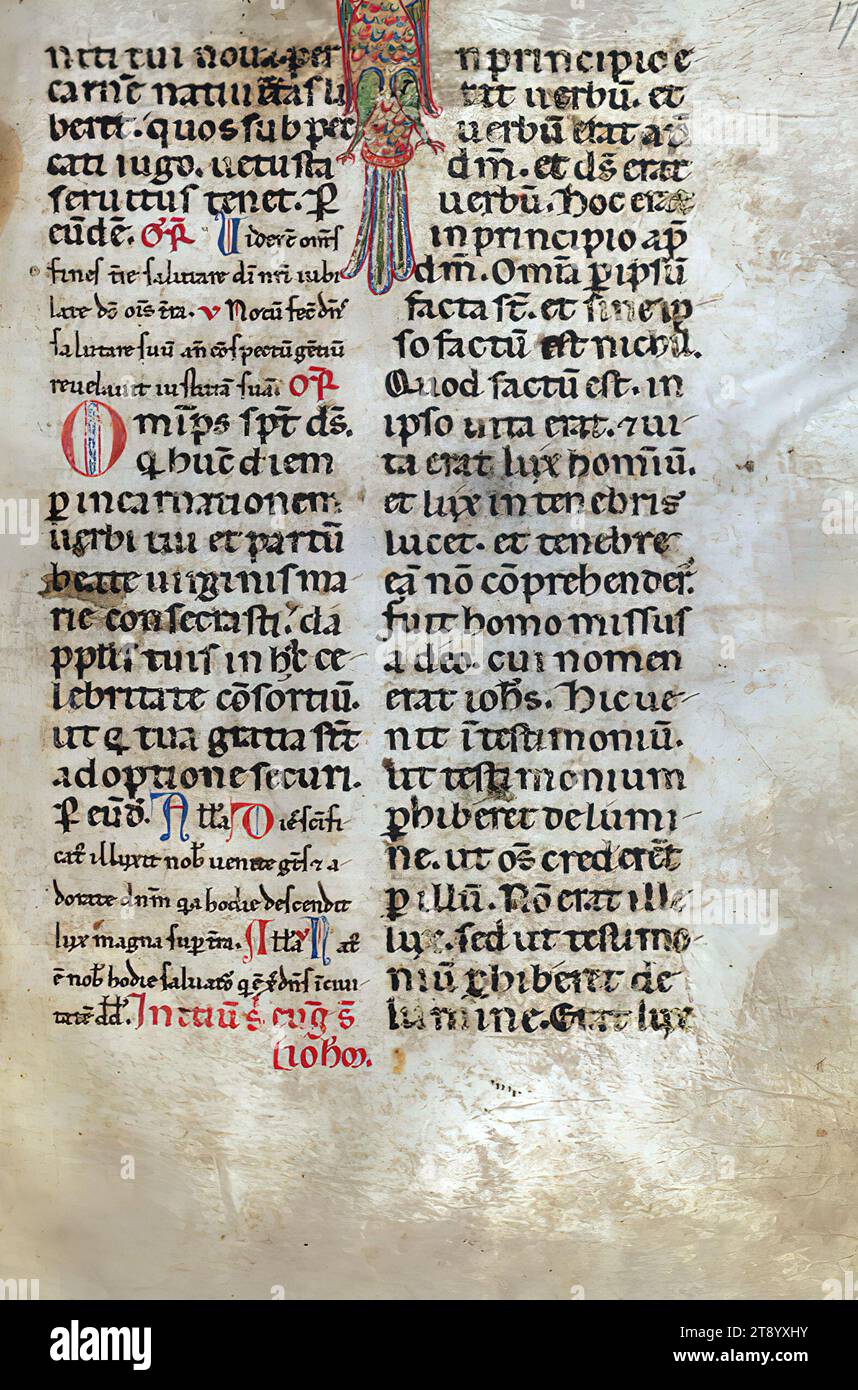 niti tui noua per
carnē natiuitas li
beret. quos sub pec
cati iugo. uetusta
seruitus tenet. P̱
eūdē. G̅P̱ Viderē om̄s
fines t̄re salutare dī nr̄i iubi
late dō ois t̄ra. v Notū fec̄ dn̄s
salutare suū an̄ cōspectū gētiū
reuelauit iustitiā suā. O̅P̱
Om̄ips sp̄t ds̄.
q̱ hūc diem
ꝑ incarnationem
uerbi tui et partū
beate uirginis ma
rie consecrasti. da
pplis tuis in hac ce
lebritate cōsortiū.
ut q̱ tua gratia sūt
adoptione securi.
P̱ eūd. All̄a Dies sc̄ifi
cat' illuxit nob' uenite gēs & a
dorate dn̄m q̱a hodie descendit
lux magna sup t̄ra. All̄a v Nat'
ē nob' hodie saluator q̱ ē x̄p̄s dn̄s ī ciui
tatē dd̄. Initiū sc̄i eūg s̄
Ioh̄m.
n principio e
rat uerbū. et
uerbū erat ap̄
dm̄. et ds̄ erat
uerbū. Hoc erat
in principio ap̄
dm̄. Omīa ꝑ ipsū
facta st̄. et sine ip
so factū est nichil.
Quod factū est. in
ipso uita erat. ⁊ ui
ta erat lux hominū.
et lux in tenebris
lucet. et tenebre
eā nō cōprehender̄.
fuit homo missus
a deo. cui nomen
erat ioh̄s. Hic ue
nit ī testimoniū.
ut testimonium
ꝑhiberet de lumi
ne. ut os̄ crederēt
ꝑ illū. Nō erat ille
lux. sed ut testimo
niū ꝑhiberet de
lumine. Erat lux
17
alamy
Image ID: 2T8YXHY
www.alamy.com